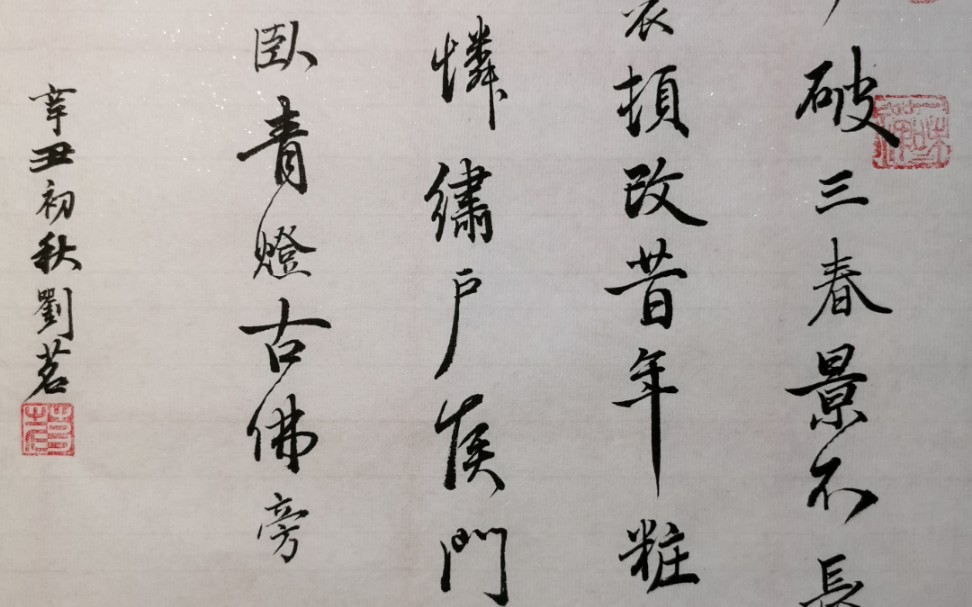 破三春景不長
衣頓改昔年粧
憐繡戶侯門
臥青燈古佛旁
辛丑初秋劉茗